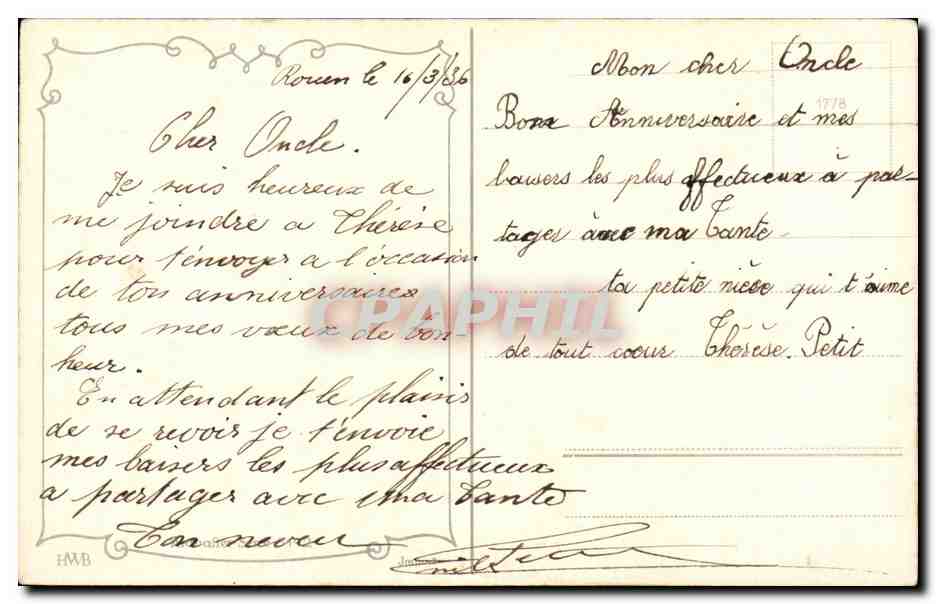 Rouen le 16/3/36
Cher Oncle.
Je suis heureux de
me joindre a Thérèse
pour t'envoyer a l'occasion
de ton anniversaires
tous mes vœux de bon-
heur.
En attendant le plaisir
de se revoir je t'envoie
mes baisers les plus affectueux
a partager avec ma Tante
Ton neveu
HWB
Mon cher Oncle
1778
Bon Anniversaire et mes
baisers les plus affectueux à par-
tager avec ma Tante.
ta petite nièce qui t'aime
de tout cœur Thérèse. Petit
CRAPHIL